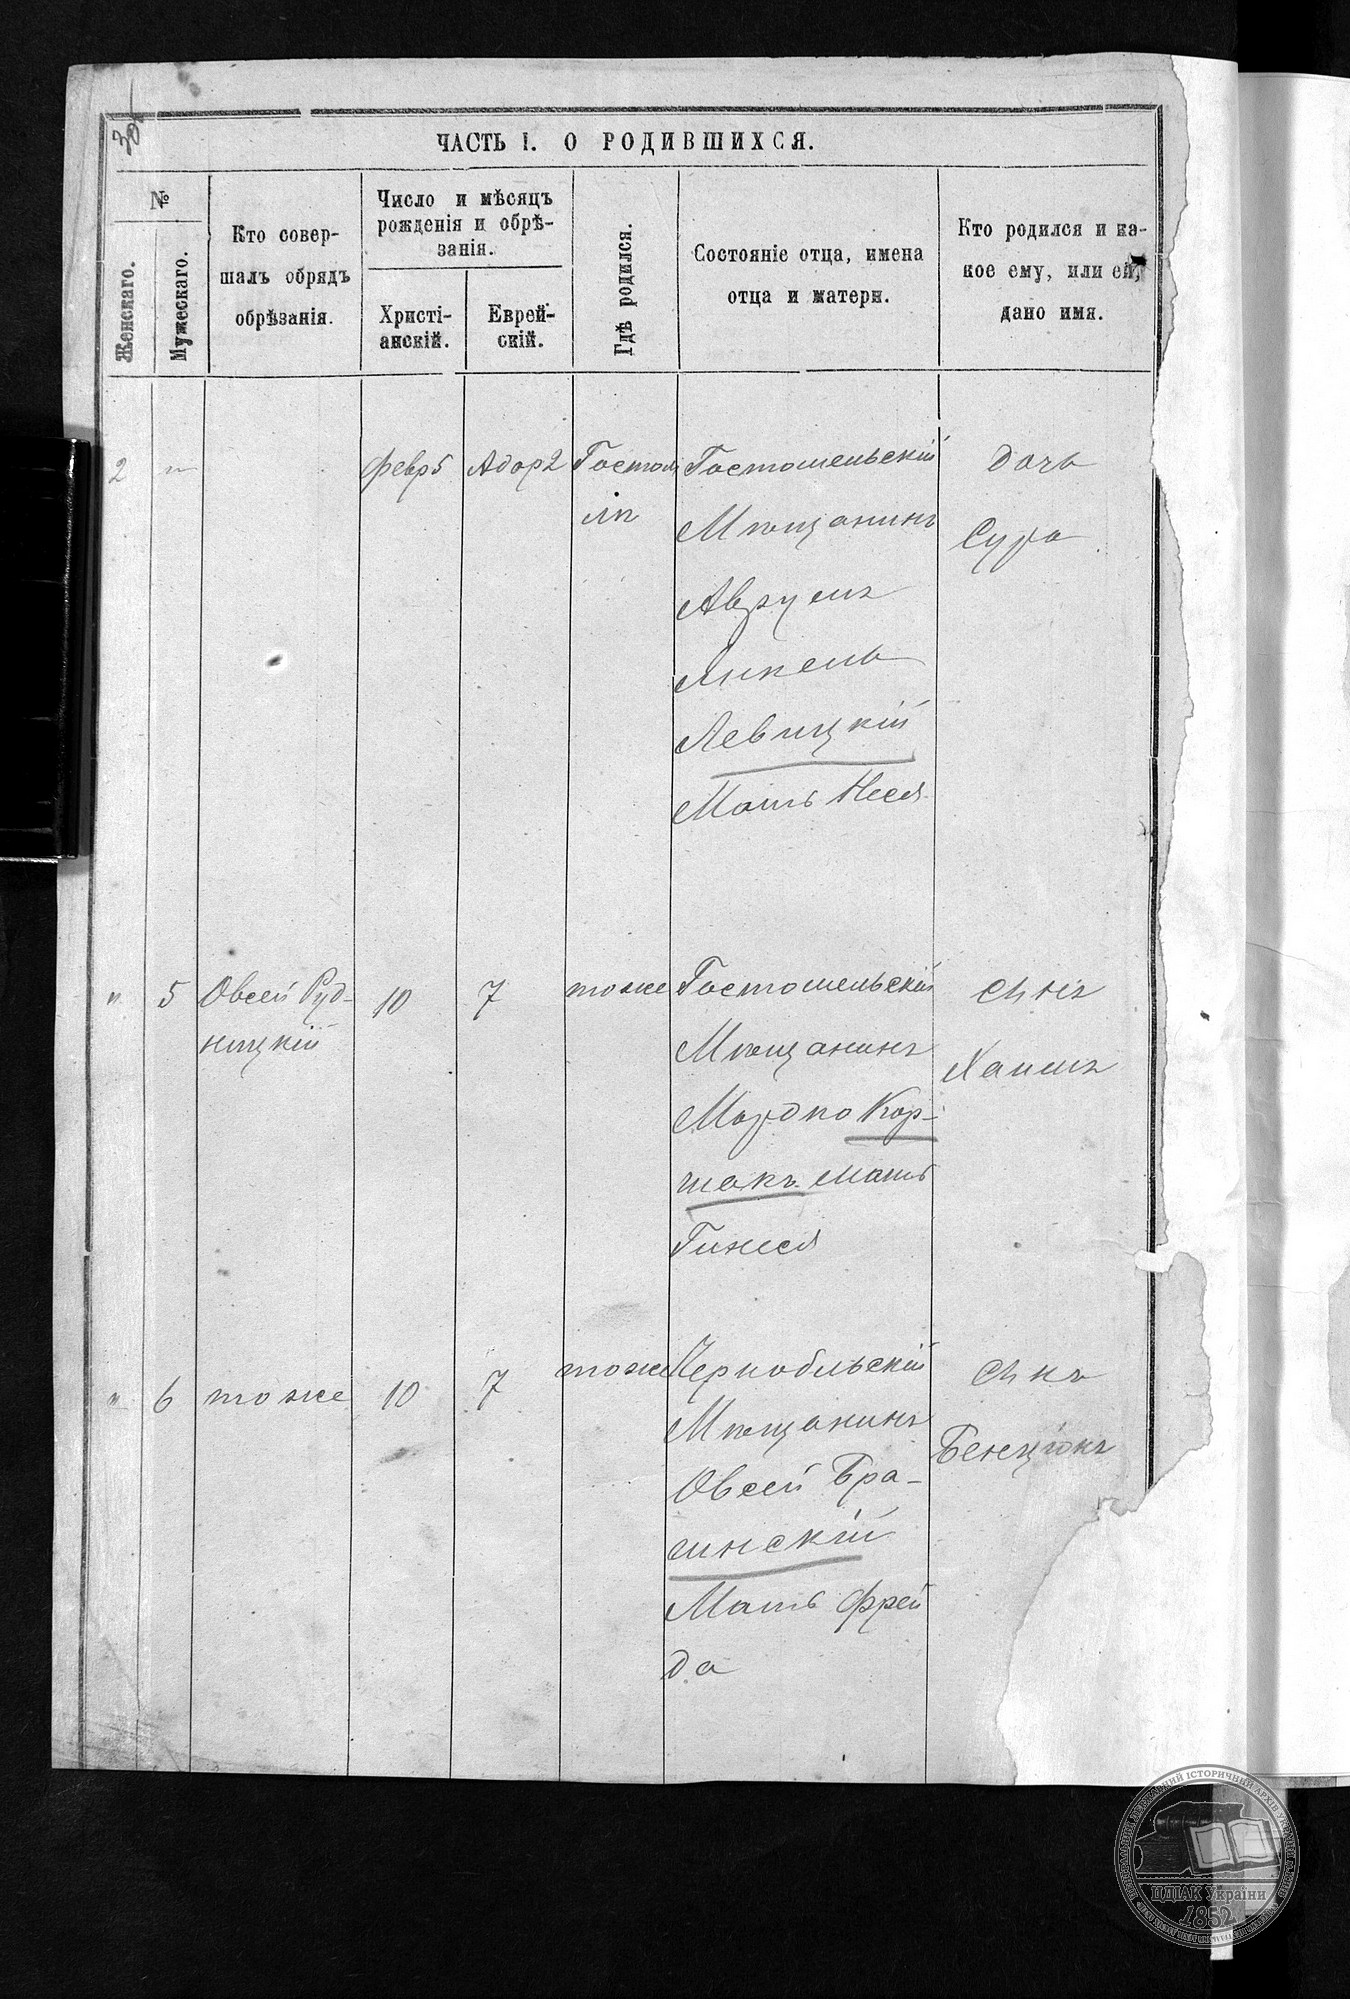 ЧАСТЬ I. О РОДИВШИХСЯ.
№
Женскаго.
Мужескаго.
Кто совер-
шалъ обрядъ
обрѣзанія.
Число и мѣсяцъ
рожденія и обрѣ-
занія.
Христі-
анскій.
Еврей-
скій.
Гдѣ родился.
Состояніе отца, имена
отца и матери.
Кто родился и ка-
кое ему, или ей,
дано имя.
2
"
февр 5
Адор 2
Гостом
лѣ
Гостомельскій
Мѣщанинъ
Аврумъ
Янкель
Левицкій
Мать Неся
дочь
Сура
"
5
Овсей Руд-
ницкій
10
7
тоже
Гостомельскій
Мѣщанинъ
Мордко Кор-
шакъ мать
Гинеся
сынъ
Хаимъ
"
6
тоже
10
7
тоже
Чернобльскій
Мѣщанинъ
Овсей Бра-
гинскій
Мать Фрей
да
сынъ
Бенціонъ
ЦДІАК України
1852